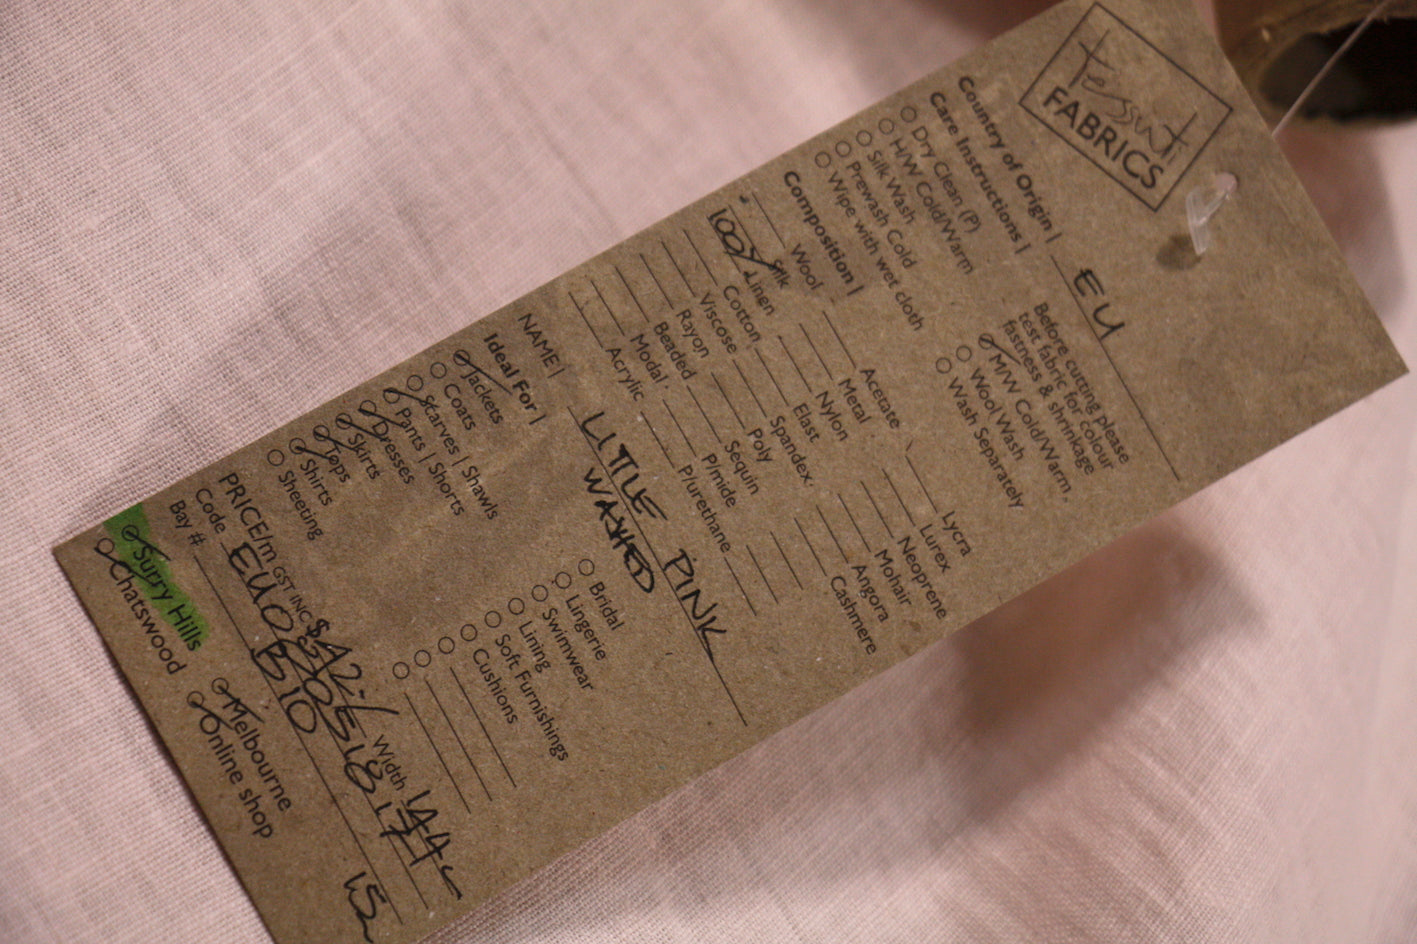 tessuti
FABRICS
Country of Origin | EU
Care Instructions |
Dry Clean (P)
H/W Cold/Warm
Silk Wash
Prewash Cold
Wipe with wet cloth
Before cutting please
test fabric for colour
fastness & shrinkage
M/W Cold/Warm
Wool Wash
Wash Separately
Composition |
Wool
Silk
100% Linen
Cotton
Viscose
Rayon
Beaded
Modal
Acrylic
Acetate
Metal
Nylon
Elast
Spandex
Poly
Sequin
P/mide
P/urethane
Lycra
Lurex
Neoprene
Mohair
Angora
Cashmere
NAME | LITTLE PINK
WASHED
Ideal For |
Jackets
Coats
Scarves | Shawls
Pants | Shorts
Dresses
Skirts
Tops
Shirts
Sheeting
Bridal
Lingerie
Swimwear
Lining
Soft Furnishings
Cushions
PRICE/m GST INC $42.- Width 144
Code
Bay # B10
Surry Hills
Chatswood
Melbourne
Online shop